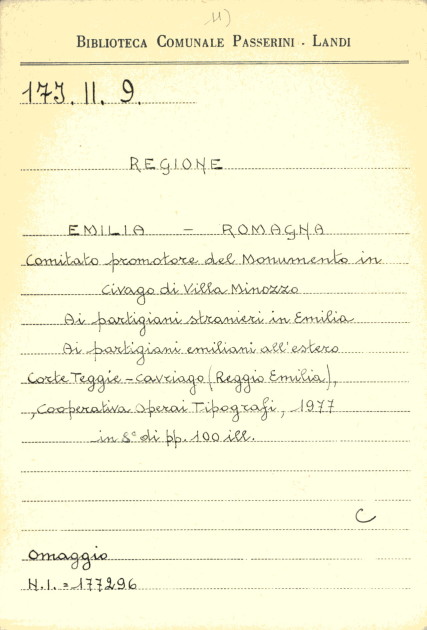 11)
BIBLIOTECA COMUNALE PASSERINI - LANDI
173. II. 9.
REGIONE
EMILIA - ROMAGNA
Comitato promotore del Monumento in
Civago di Villa Minozzo
Ai partigiani stranieri in Emilia
Ai partigiani emiliani all'estero
Corte Teggie - Cavriago (Reggio Emilia),
, Cooperativa Operai Tipografi, 1977
in 8° di pp. 100 ill.
C
Omaggio
N.I. = 177296